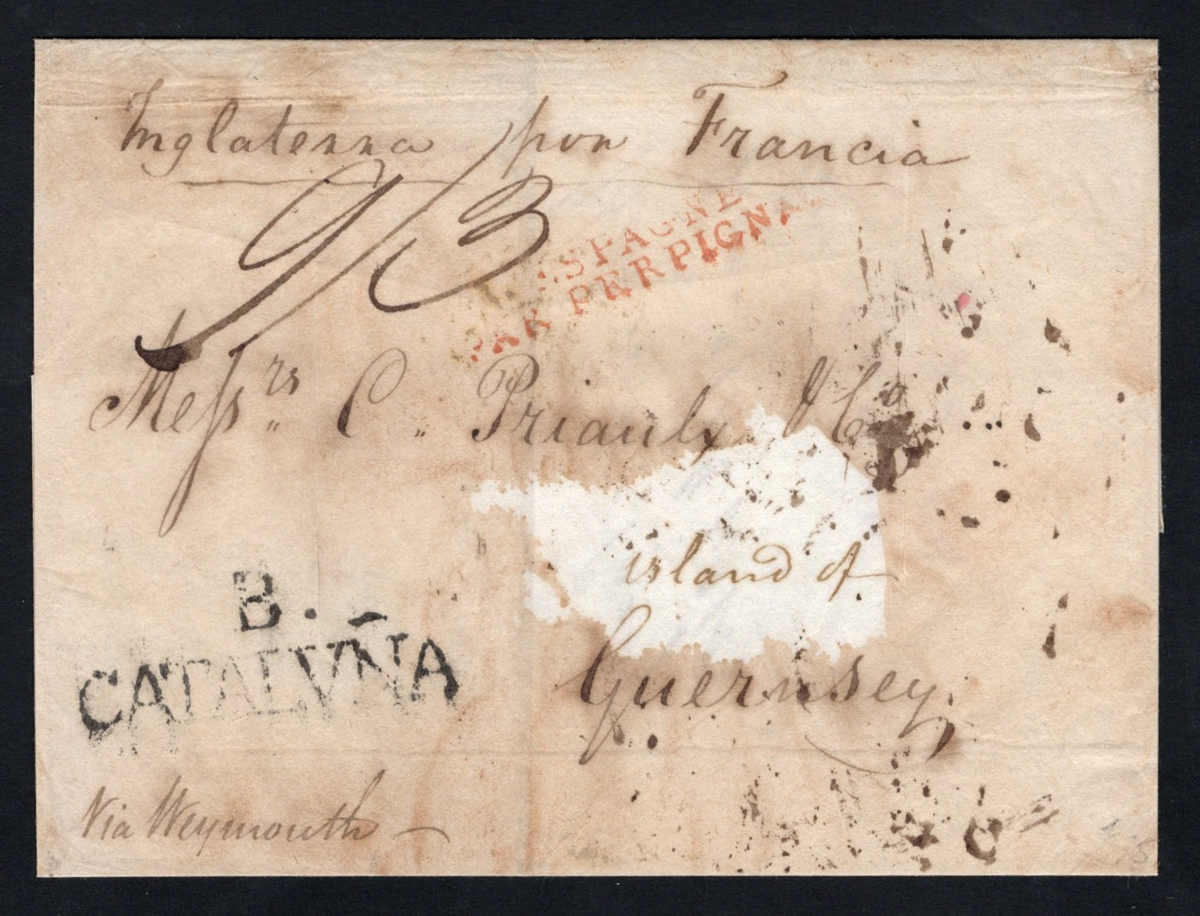 Inglaterra por Francia
9/3
ESPAGNE
PAR PERPIGNAN
Messrs C. Priaulx & Co
island of
Guernsey
B.
CATALVÑA
Via Weymouth